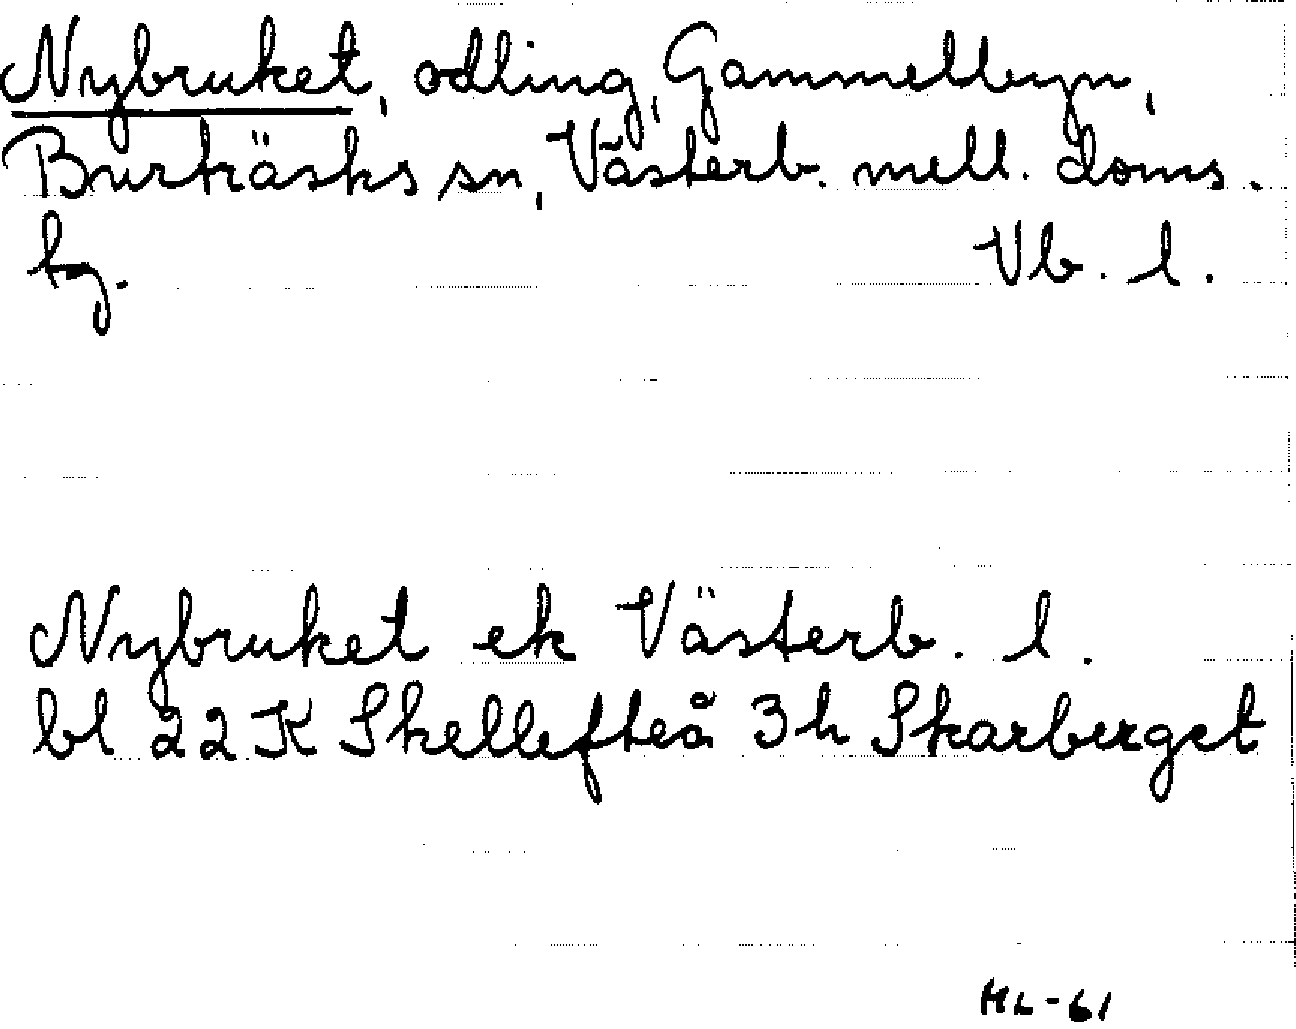 Nybruket, odling, Gammelbyn,
Burträsks sn, Västerb. mell. doms.
bg. Vb. l.
Nybruket ek Västerb. l.
bl 22K Skellefteå 3h Skarberget
HL-61